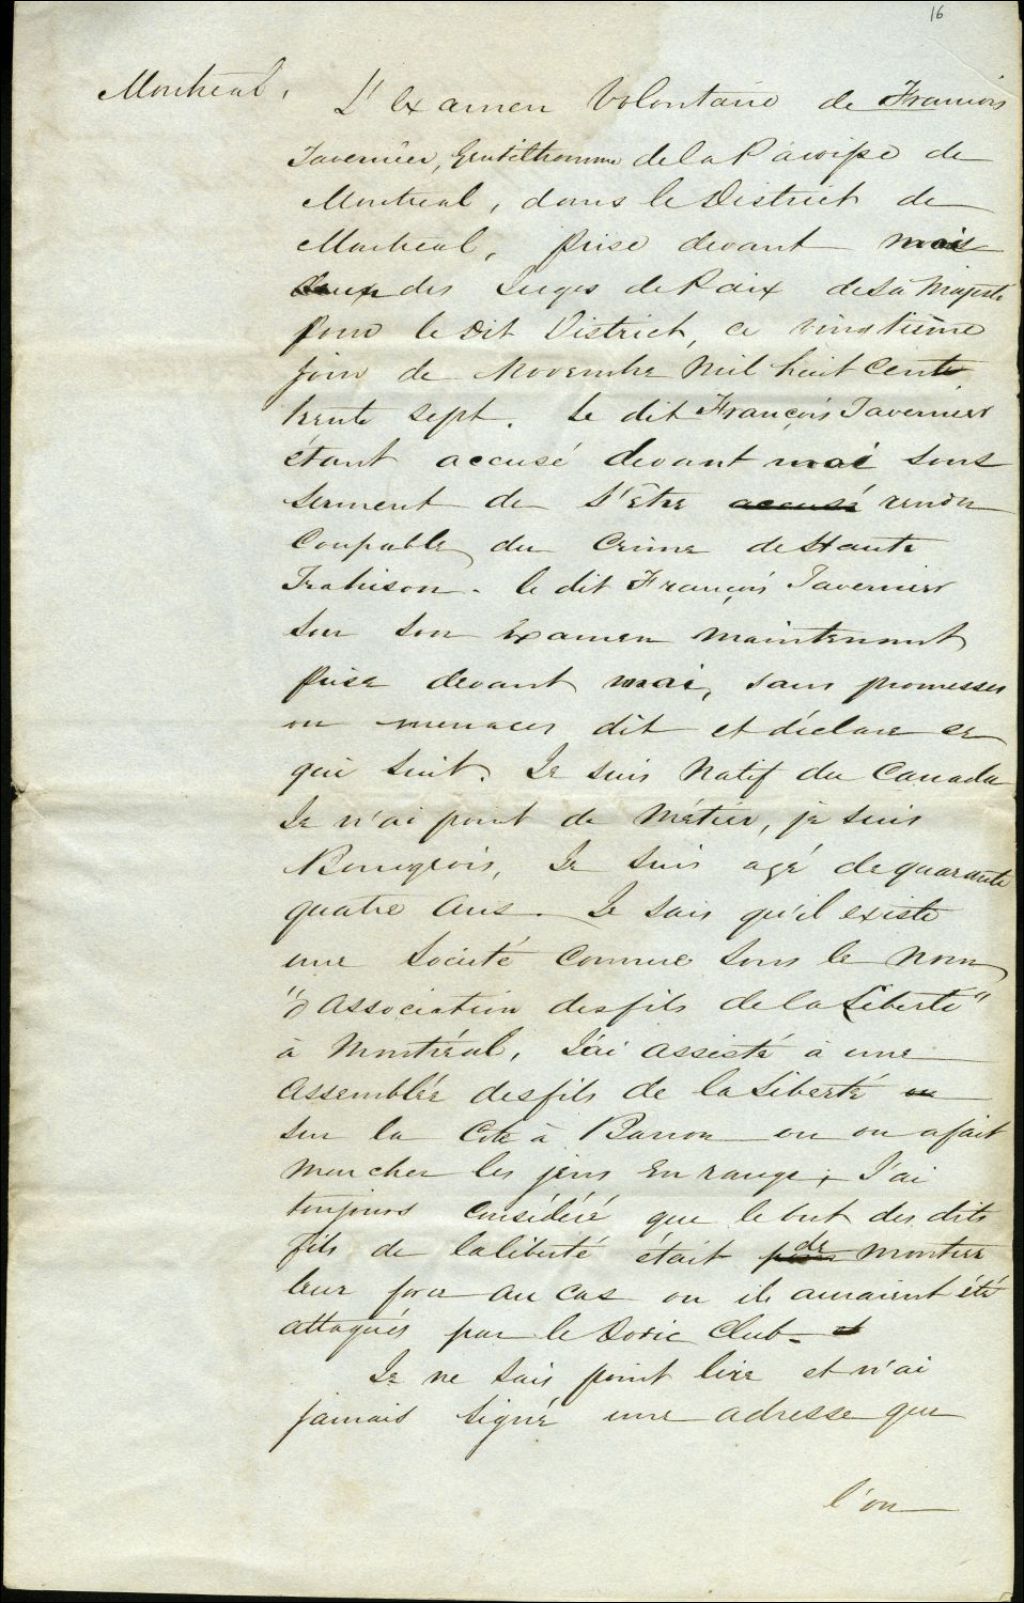 16
Montreal. L'Examen Volontaire de François
Tavernier, Gentilhomme de la Paroisse de
Montreal, dans le District de
Montreal, prise devant moi
deux des Juges de Paix de Sa Majesté
pour le dit District, ce vingtième
jour de Novembre Mil huit Cent
trente sept. Le dit François Tavernier
étant accusé devant moi sous
serment de s'être accusé rendu
Coupable du Crime de Haute
Trahison. le dit François Tavernier
sur son Examen maintenant
prise devant moi, sans promesses
ou menaces dit et déclare ce
qui suit. Je suis Natif du Canada
Je n'ai point de Métier, je suis
Bourgeois, Je suis agé de quarante
quatre Ans. Je sais qu'il existe
une Société Connue sous le Nom
"d'Association des fils de la Liberté"
à Montréal, J'ai Assisté à une
Assemblée des fils de la Liberté ou
sur la Cote à Barron ou on a fait
marcher les jens en rangs; J'ai
toujours considéré que le but des dits
fils de la liberté était pour de montrer
leur force au cas ou ils auraient été
attaqués par le Doric Club. et
Je ne sais point lire et n'ai
jamais signé une adresse que
l'on